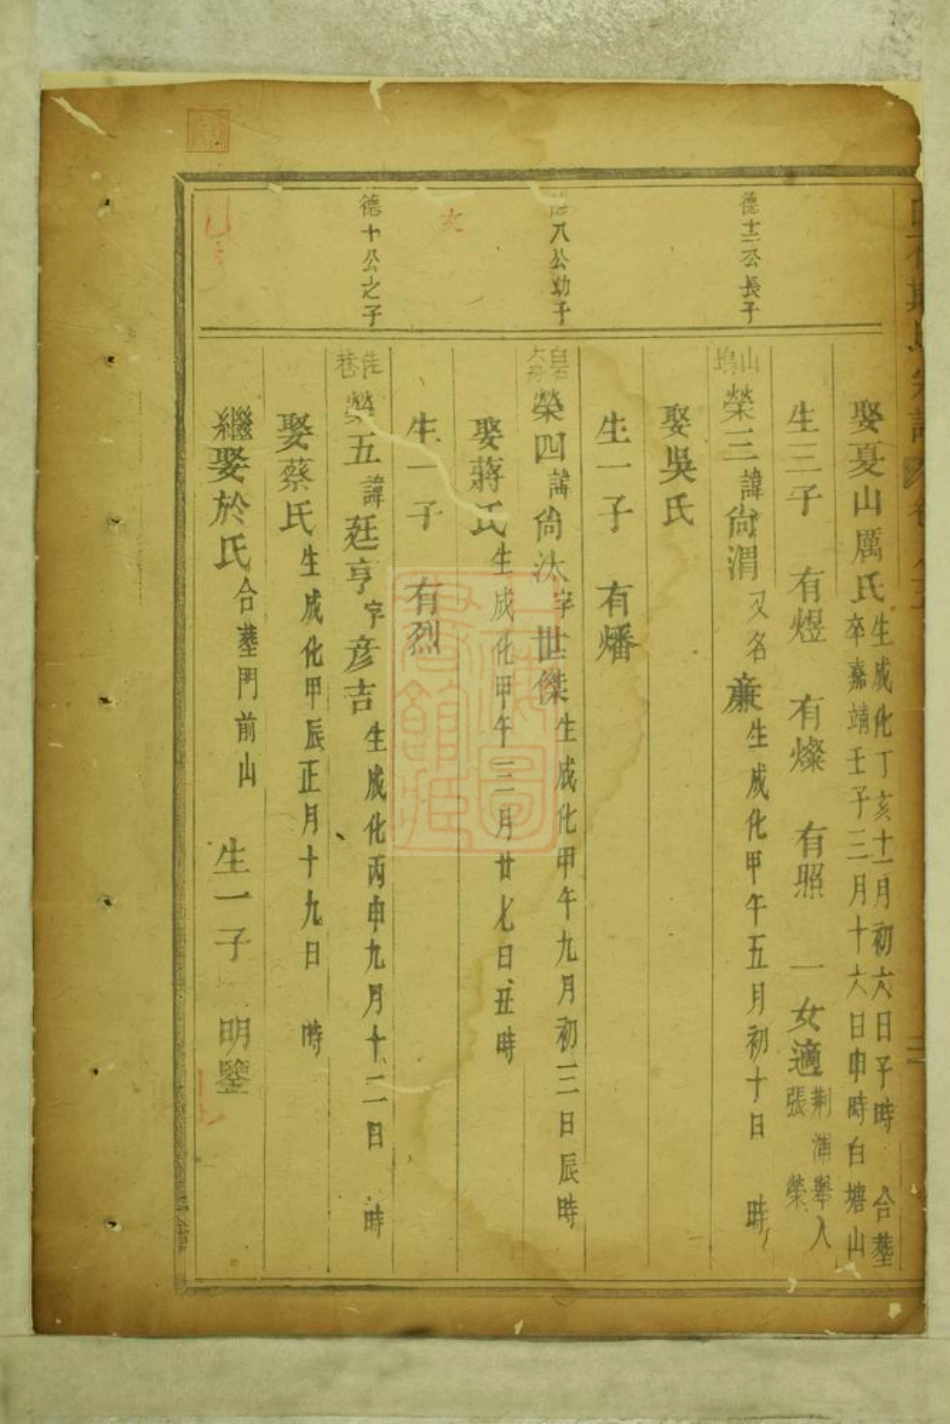 娶夏山厲氏生成化丁亥十一月初六日子時 合葬
卒嘉靖壬子三月十六日申時白塘山
生三子 有煜 有燦 有照 一女適荆浦舉人
張 榮
德十二公長子
山塢
榮三諱尚渭又名廉生成化甲午五月初十日 時
娶吳氏
生一子 有燔
八公幼子
榮四諱尚汏字世傑生成化甲午九月初三日辰時
娶蔣氏生成化甲午三月廿七日丑時
生一子 有烈
德十公之子
巷
榮五諱廷亨字彥吉生成化丙申九月十二日 時
娶蔡氏生成化甲辰正月十九日 時
繼娶於氏合葬門前山 生一子 明鑒